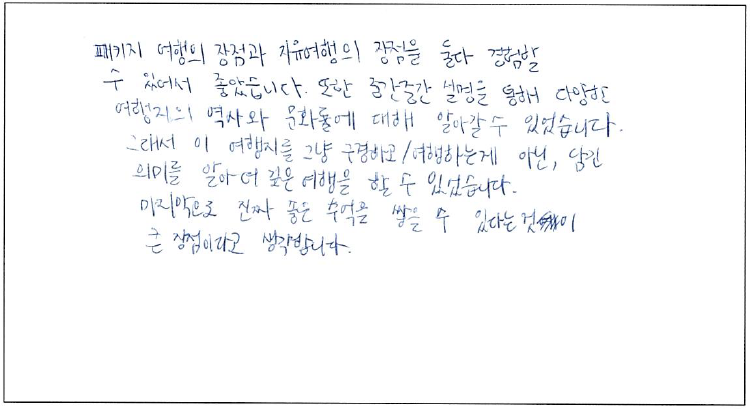 패키지 여행의 장점과 자유여행의 장점을 둘다 경험할
수 있어서 좋았습니다. 또한 중간중간 설명을 통해 다양한
여행지의 역사와 문화들에 대해 알아갈 수 있었습니다.
그래서 이 여행지를 그냥 구경하고/여행하는게 아닌, 담긴
의미를 알아 더 깊은 여행을 할 수 있었습니다.
마지막으로 진짜 좋은 추억을 쌓을 수 있다는 것이
큰 장점이라고 생각합니다.